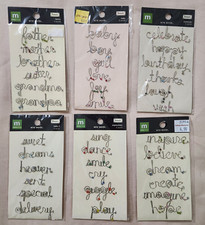 father
mother
brother
sister
grandma
grandpa
baby
boy
girl
love
joy
smile
celebrate
happy
birthday
thanks
laugh
wish
sweet
dreams
heaven
sent
special
delivery
sing
dance
smile
cry
giggle
play
inspire
believe
dream
create
imagine
hope